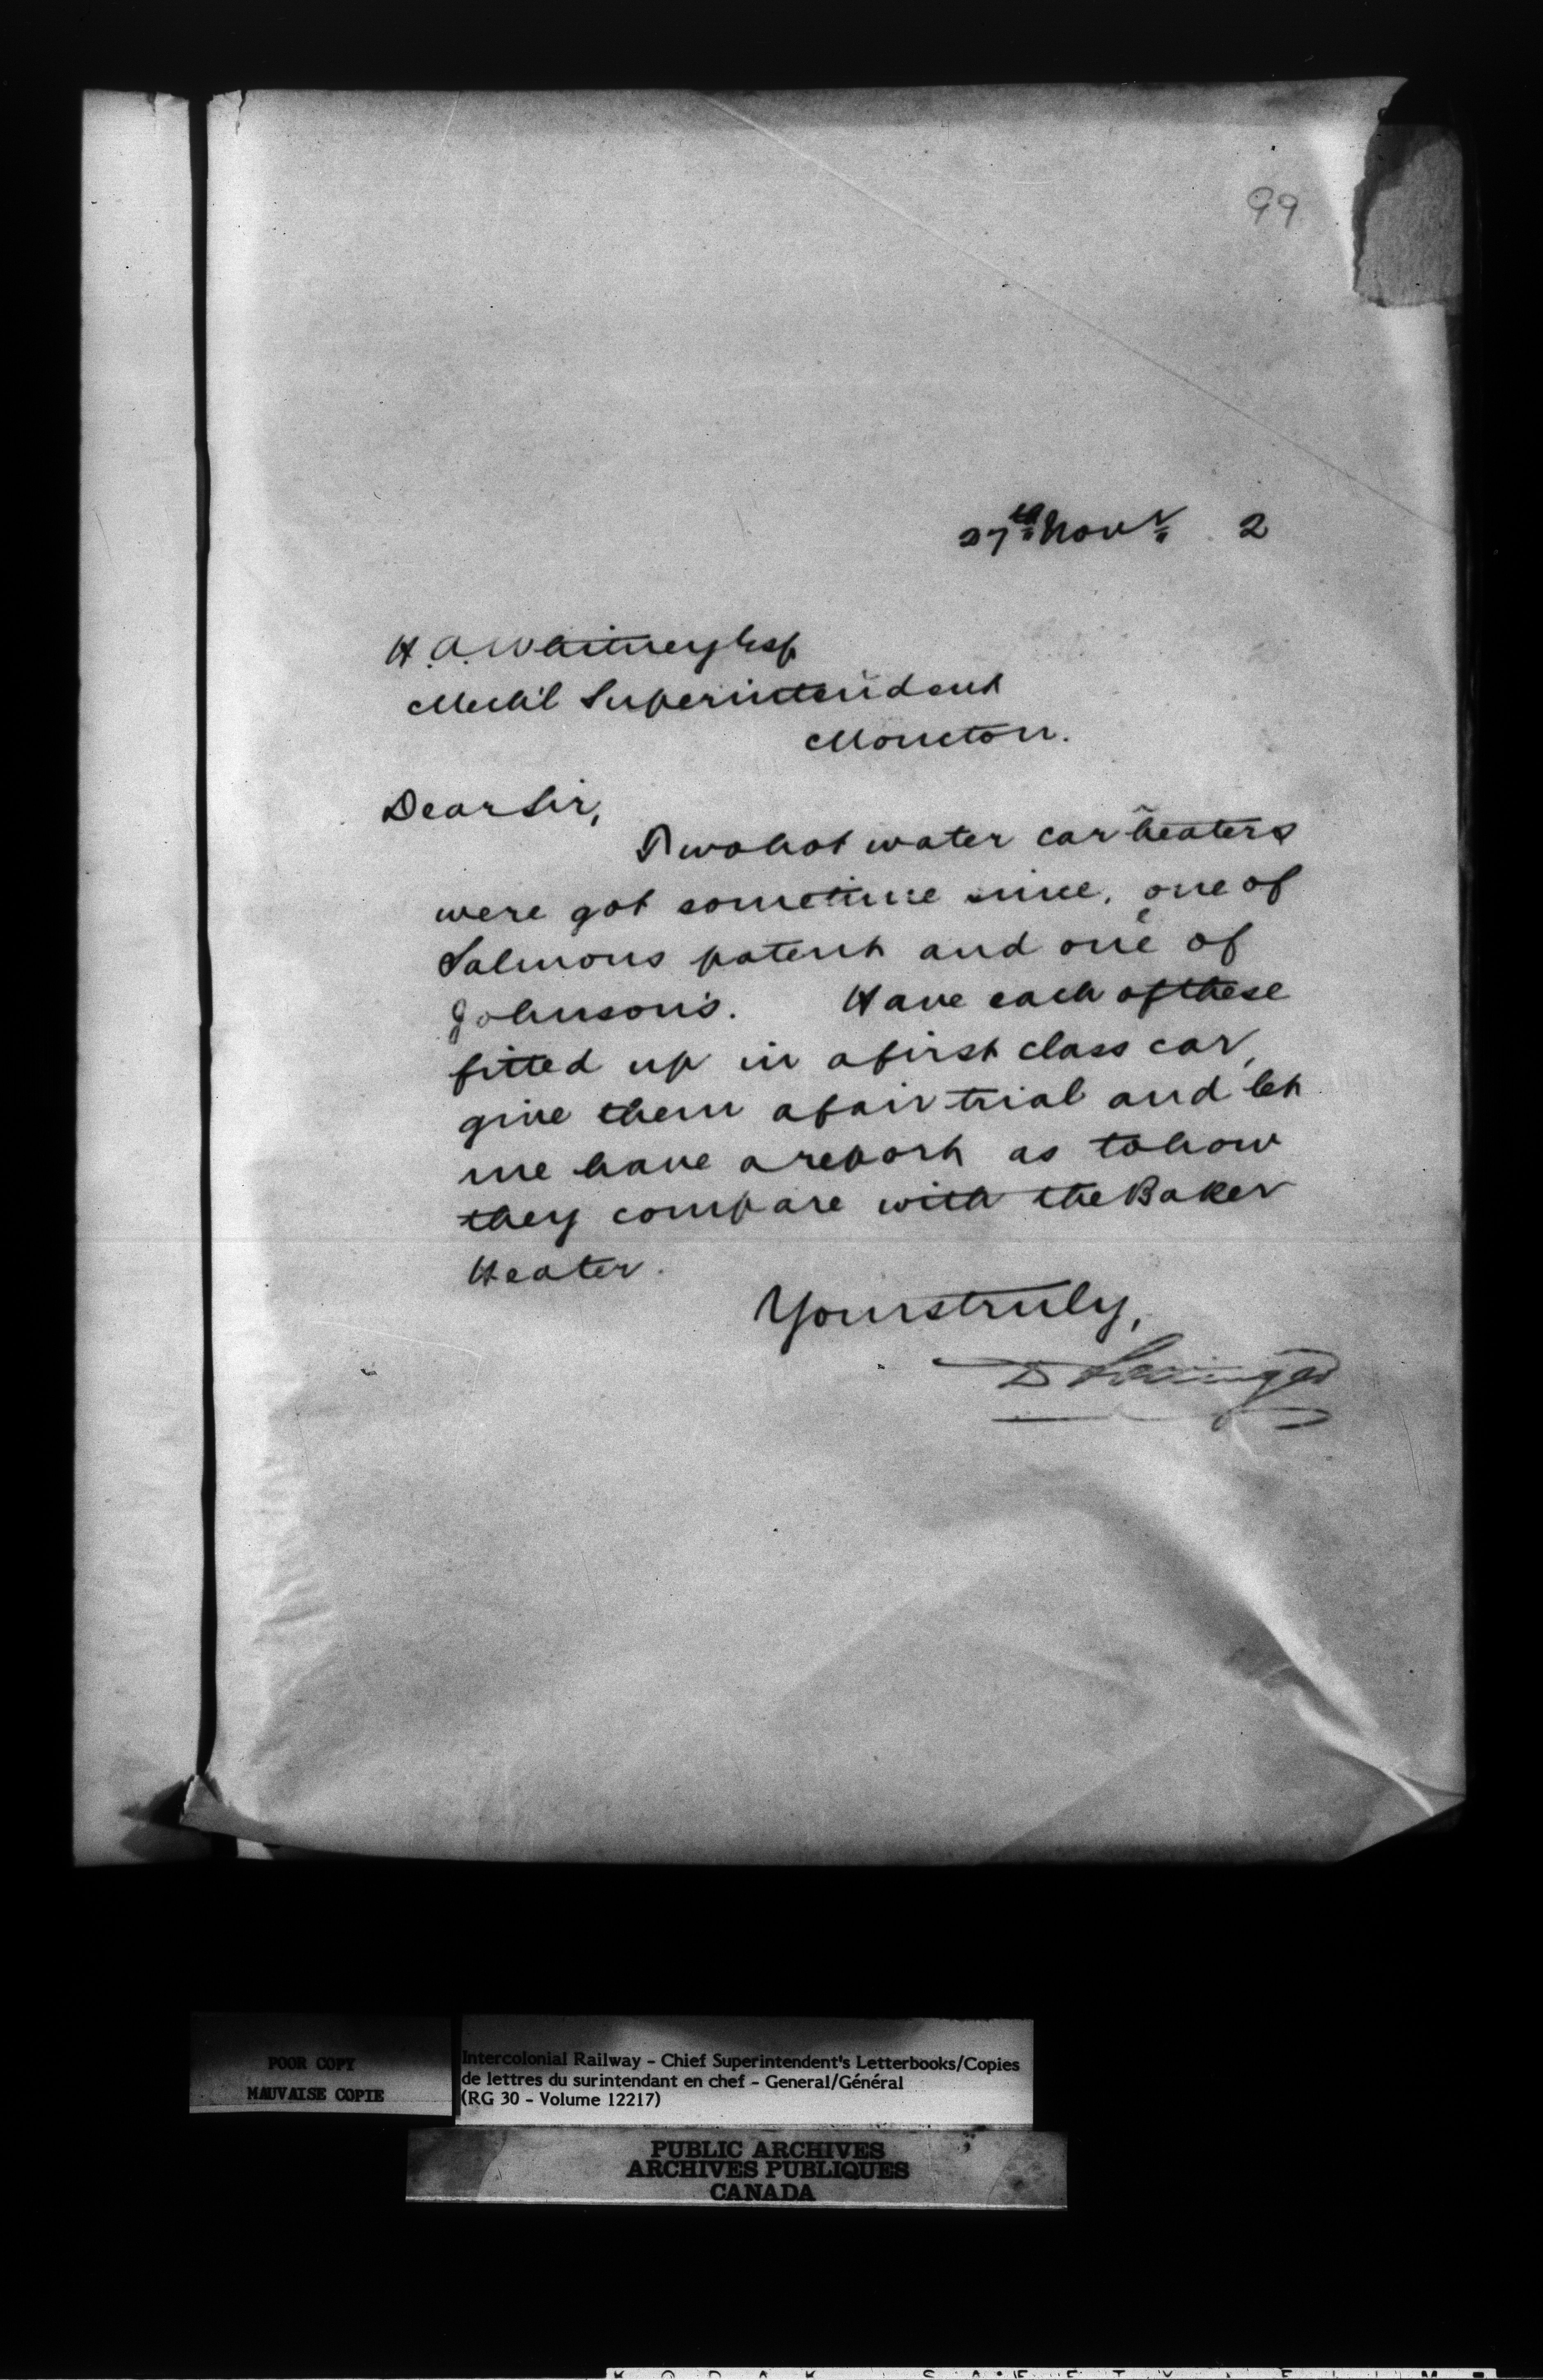 99
27th Novr 2
H. A. Whitney Esq
Mech'l Superintendent
Moncton.
Dear Sir,
Two hot water car heaters
were got sometime since, one of
Salmons patent and one of
Johnson's. Have each of these
fitted up in a first class car,
give them a fair trial and let
me have a report as to how
they compare with the Baker
Heater.
Yours truly,
D Pottinger
POOR COPY
MAUVAISE COPIE
Intercolonial Railway - Chief Superintendent's Letterbooks/Copies
de lettres du surintendant en chef - General/Général
(RG 30 - Volume 12217)
PUBLIC ARCHIVES
ARCHIVES PUBLIQUES
CANADA